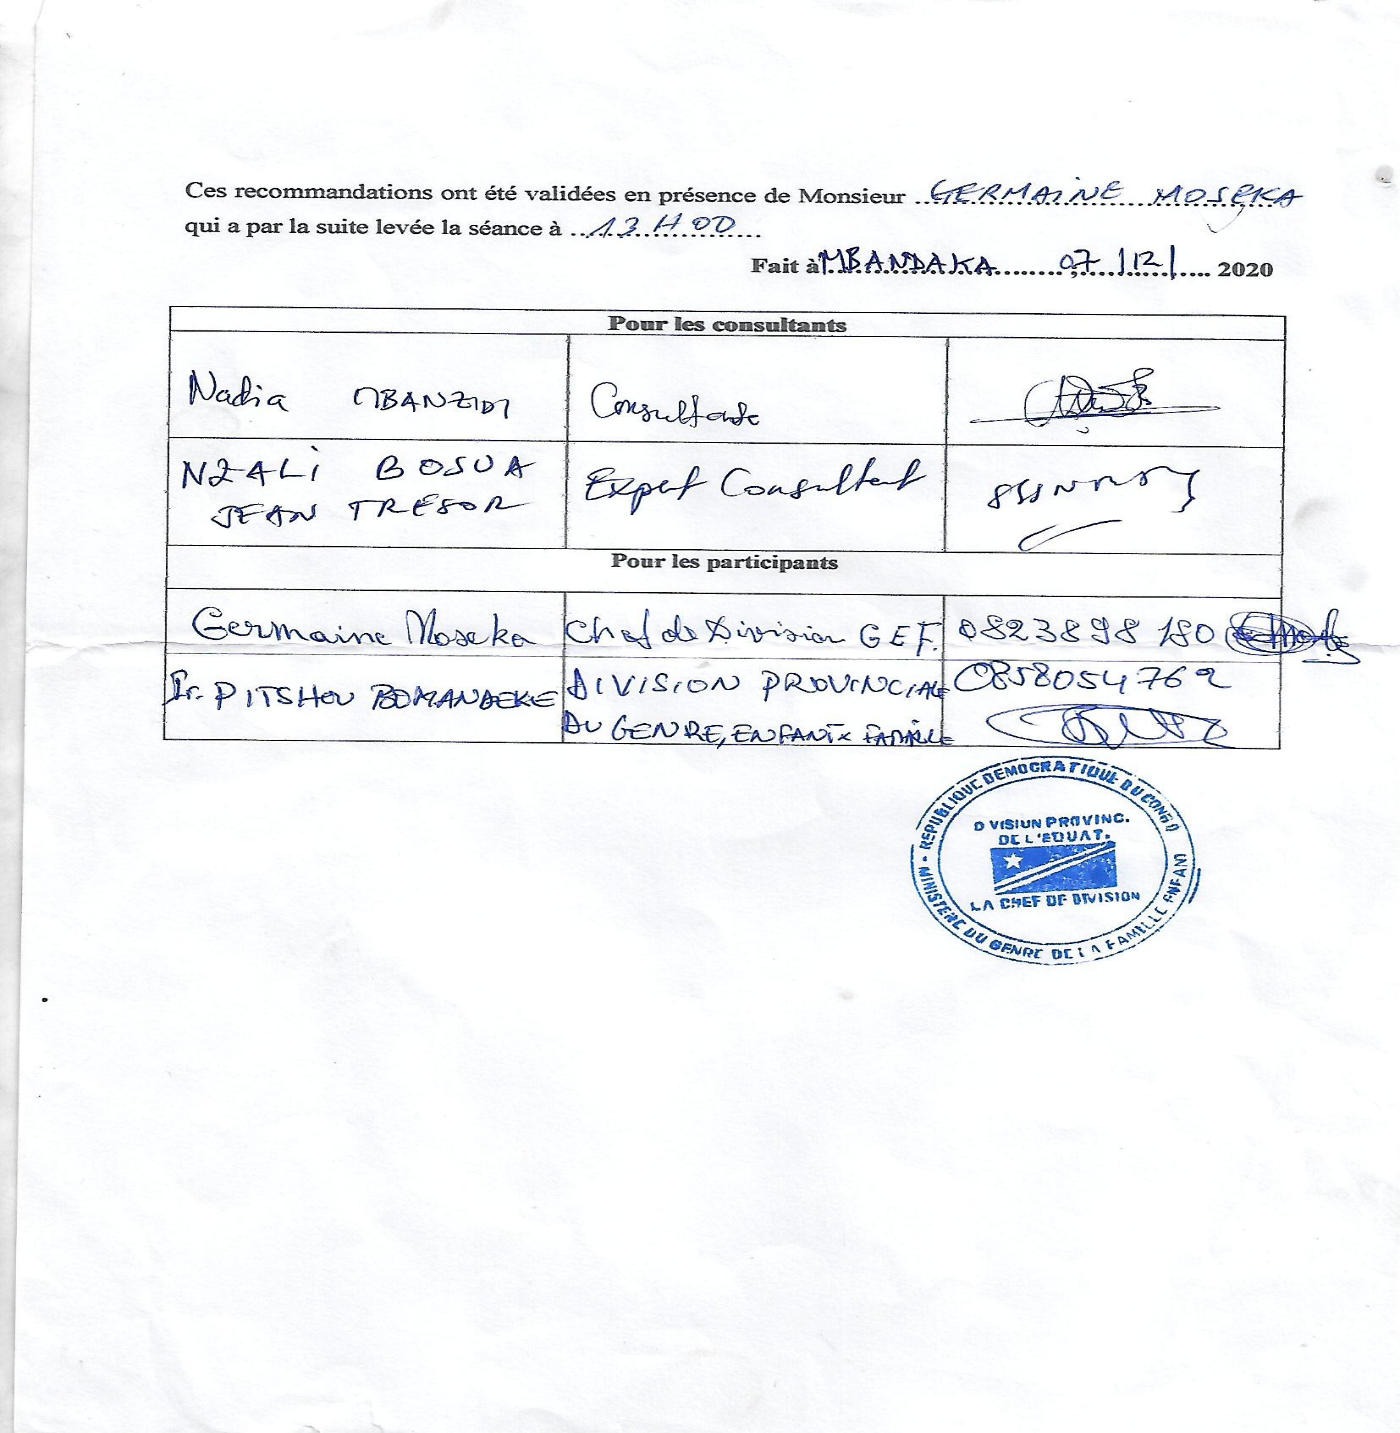 Ces recommandations ont été validées en présence de Monsieur ..GERMAINE MOSEKA
qui a par la suite levée la séance à ...13 H 00....
Fait à MBANDAKA........07./12/..... 2020
Pour les consultants
Nadia MBANZIDI Consultante
NZALI BOSUA Expert Consultant
JEAN TRESOR
Pour les participants
Germaine Moseka Chef de Division GEF. 0823898180
Ir. PITSHOU BOMANDEKE DIVISION PROVINCIALE 0858054769
DU GENRE, ENFANT & FAMILLE
REPUBLIQUE DEMOCRATIQUE DU CONGO
D VISIUN PROVINC.
DE L'EQUAT.
LA CHEF DE DIVISION
MINISTERE DU GENRE DE LA FAMILLE ENFANT